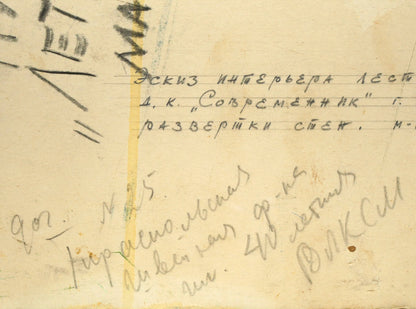 "ЛЕТ
МА
ЭСКИЗ ИНТЕРЬЕРА ЛЕСТ
Д. К. „СОВРЕМЕННИК" Г.
РАЗВЕРТКИ СТЕН. М-
дог. № 25
Тираспольская
швейная ф-ка
им. 40 летия
ВЛКСМ